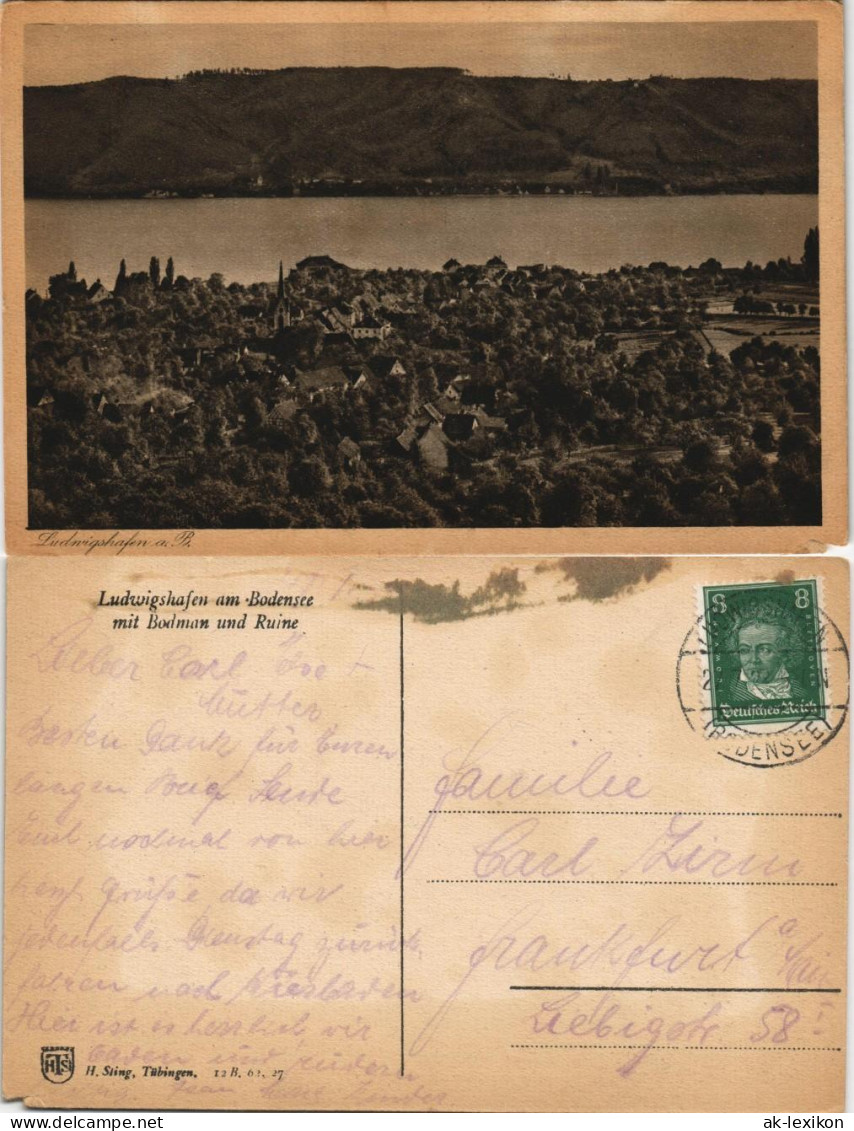 Ludwigshafen a. B.
Ludwigshafen am Bodensee
mit Bodman und Ruine
Lieber Carl
Mutter
Besten Dank für Euren
langen Brief Sende
Euch nochmal von hier
herzl Grüße da wir
jedenfalls Dienstag zurück
fahren nach Wiesbaden
Hier ist es herrlich wir
baden und rudern
H. Sting, Tübingen. 12 B. 62. 27
8 8
Deutsches Reich
(BODENSEE)
Familie
Carl Zirm
Frankfurt a/Main
Liebigstr. 58 I
ak-lexikon